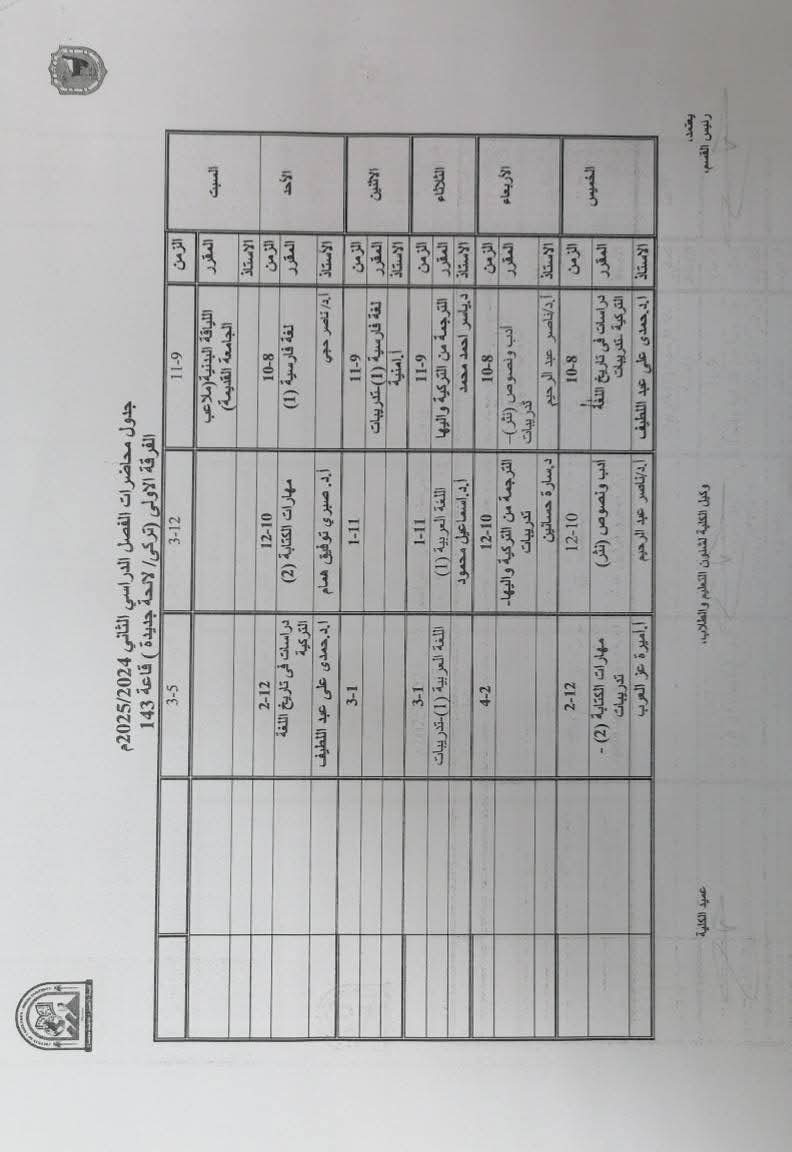 جدول محاضرات الفصل الدراسي الثاني 2025/2024م
الفرقة الاولى (تركى/ لائحة جديدة ) قاعة 143
السبت
الزمن 11-9 3-12 3-5
المقرر اللياقة البدنية(ملاعب
الجامعة القديمة)
الاستاذ
الأحد
الزمن 10-8 12-10 2-12
المقرر لغة فارسية (1) مهارات الكتابة (2) دراسات فى تاريخ اللغة
التركية
الأستاذ أ.د/ ناصر حجي أ.د. صبري توفيق همام أ.د.حمدى على عبد اللطيف
الاثنين
الزمن 11-9 1-11 3-1
المقرر لغة فارسية (1)-تدريبات
الأستاذ أ.امنية
الثلاثاء
الزمن 11-9 1-11 3-1
المقرر الترجمة من التركية واليها اللغة العربية (1) اللغة العربية (1)-تدريبات
الاستاذ د.ياسر احمد محمد أ.د.إسماعيل محمود
الأربعاء
الزمن 10-8 12-10 4-2
المقرر أدب ونصوص (نثر)–
تدريبات
الترجمة من التركية واليها-
تدريبات
الاستاذ أ.د/ناصر عبد الرحيم د.سارة حسانين
الخميس
الزمن 10-8 12-10 2-12
المقرر دراسات فى تاريخ اللغة
التركية تدريبات
ادب ونصوص (نثر)
مهارات الكتابة (2) -
تدريبات
الاستاذ أ.د.حمدى على عبد اللطيف أ.د/ناصر عبد الرحيم أ.اميرة عز العرب
يعتمد،
رئيس القسم،
وكيل الكلية لشئون التعليم والطلاب،
عميد الكلية